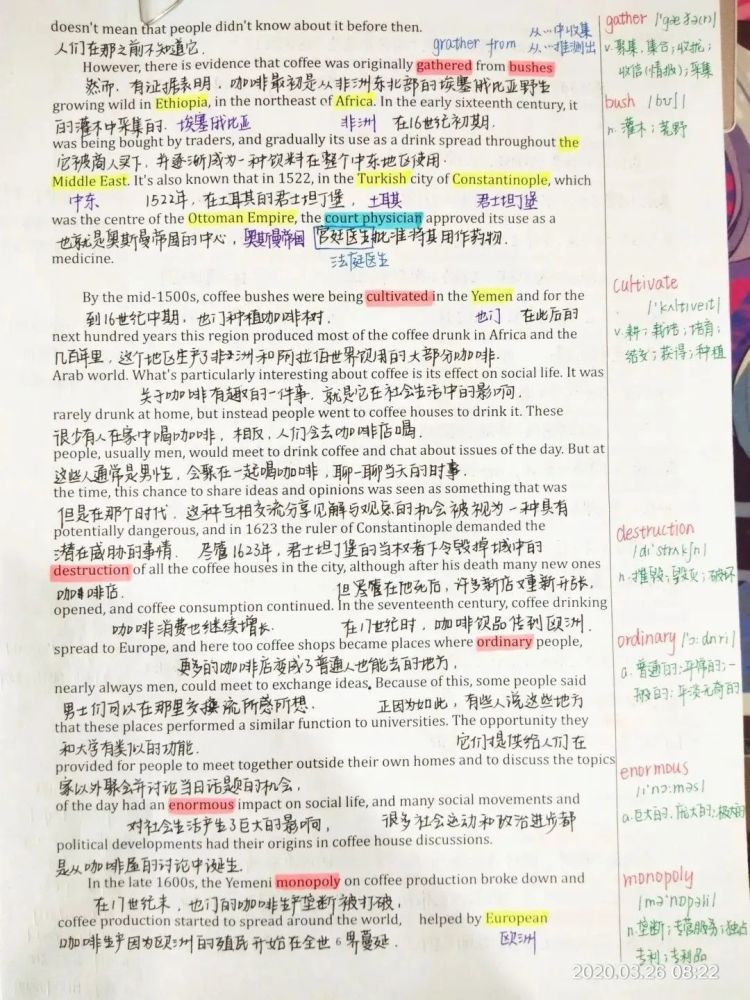 doesn't mean that people didn't know about it before then.
人们在那之前不知道它.
grather from
从…中收集
从…推测出
However, there is evidence that coffee was originally gathered from bushes
然而，有证据表明，咖啡最初是从非洲东北部的埃塞俄比亚野生
growing wild in Ethiopia, in the northeast of Africa. In the early sixteenth century, it
的灌木中采集的. 埃塞俄比亚 非洲 在16世纪初期.
was being bought by traders, and gradually its use as a drink spread throughout the
它被商人买下，并逐渐成为一种饮料在整个中东地区使用.
Middle East. It's also known that in 1522, in the Turkish city of Constantinople, which
中东 1522年，在土耳其的君士坦丁堡， 土耳其 君士坦丁堡
was the centre of the Ottoman Empire, the court physician approved its use as a
也就是奥斯曼帝国的中心，奥斯曼帝国 宫廷医生批准将其用作药物.
medicine.
法庭医生
By the mid-1500s, coffee bushes were being cultivated in the Yemen and for the
到16世纪中期，也门种植咖啡树. 也门 在此后的
next hundred years this region produced most of the coffee drunk in Africa and the
几百年里，这个地区生产了非洲和阿拉伯世界饮用的大部分咖啡.
Arab world. What's particularly interesting about coffee is its effect on social life. It was
关于咖啡有趣的一件事，就是它在社会生活中的影响.
rarely drunk at home, but instead people went to coffee houses to drink it. These
很少有人在家中喝咖啡，相反，人们会去咖啡店喝.
people, usually men, would meet to drink coffee and chat about issues of the day. But at
这些人通常是男性，会聚在一起喝咖啡，聊一聊当天的时事.
the time, this chance to share ideas and opinions was seen as something that was
但是在那个时代，这种互相交流分享见解与观点的机会被视为一种具有
potentially dangerous, and in 1623 the ruler of Constantinople demanded the
潜在威胁的事情. 尽管1623年，君士坦丁堡的当权者下令毁掉城中的
destruction of all the coffee houses in the city, although after his death many new ones
咖啡店. 但尽管在他死后，许多新店又重新开张，
opened, and coffee consumption continued. In the seventeenth century, coffee drinking
咖啡消费也继续增长. 在17世纪时，咖啡饮品传到欧洲.
spread to Europe, and here too coffee shops became places where ordinary people,
更多的咖啡店变成了普通人也能去的地方，
nearly always men, could meet to exchange ideas. Because of this, some people said
男士们可以在那里交流所感所想. 正因为如此，有些人说这些地方
that these places performed a similar function to universities. The opportunity they
和大学有类似的功能. 它们提供给人们在
provided for people to meet together outside their own homes and to discuss the topics
家以外聚会并讨论当日话题的机会，
of the day had an enormous impact on social life, and many social movements and
对社会生活产生了巨大的影响， 很多社会运动和政治进步都
political developments had their origins in coffee house discussions.
是从咖啡屋的讨论中诞生.
In the late 1600s, the Yemeni monopoly on coffee production broke down and
在17世纪末，也门的咖啡生产垄断被打破，
coffee production started to spread around the world, helped by European
咖啡生产因为欧洲的殖民开始在全世界蔓延. 欧洲
6
gather /'gæðə(r)/
v. 聚集，集合；收拢；
收信(情报)；采集
bush /bʊʃ/
n. 灌木；荒野
cultivate
/'kʌltɪveɪt/
v. 耕；栽培；培育；
结交；获得；种植
destruction
/dɪ'strʌkʃn/
n. 摧毁；毁灭；破坏
ordinary /'ɔ:dnri/
a. 普通的；平常的；一
般的；平淡无奇的
enormous
/ɪ'nɔ:məs/
a. 巨大的，庞大的；极大的
monopoly
/mə'nɒpəli/
n. 垄断；专营服务；独占
专利；专利品
2020.03.26 08:22